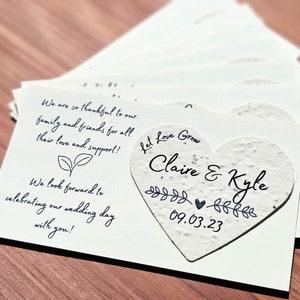 We are so thankful to our
family and friends for all
their love and support!
We look forward to
celebrating our wedding day
with you!
Let Love Grow
Claire & Kyle
09.03.23